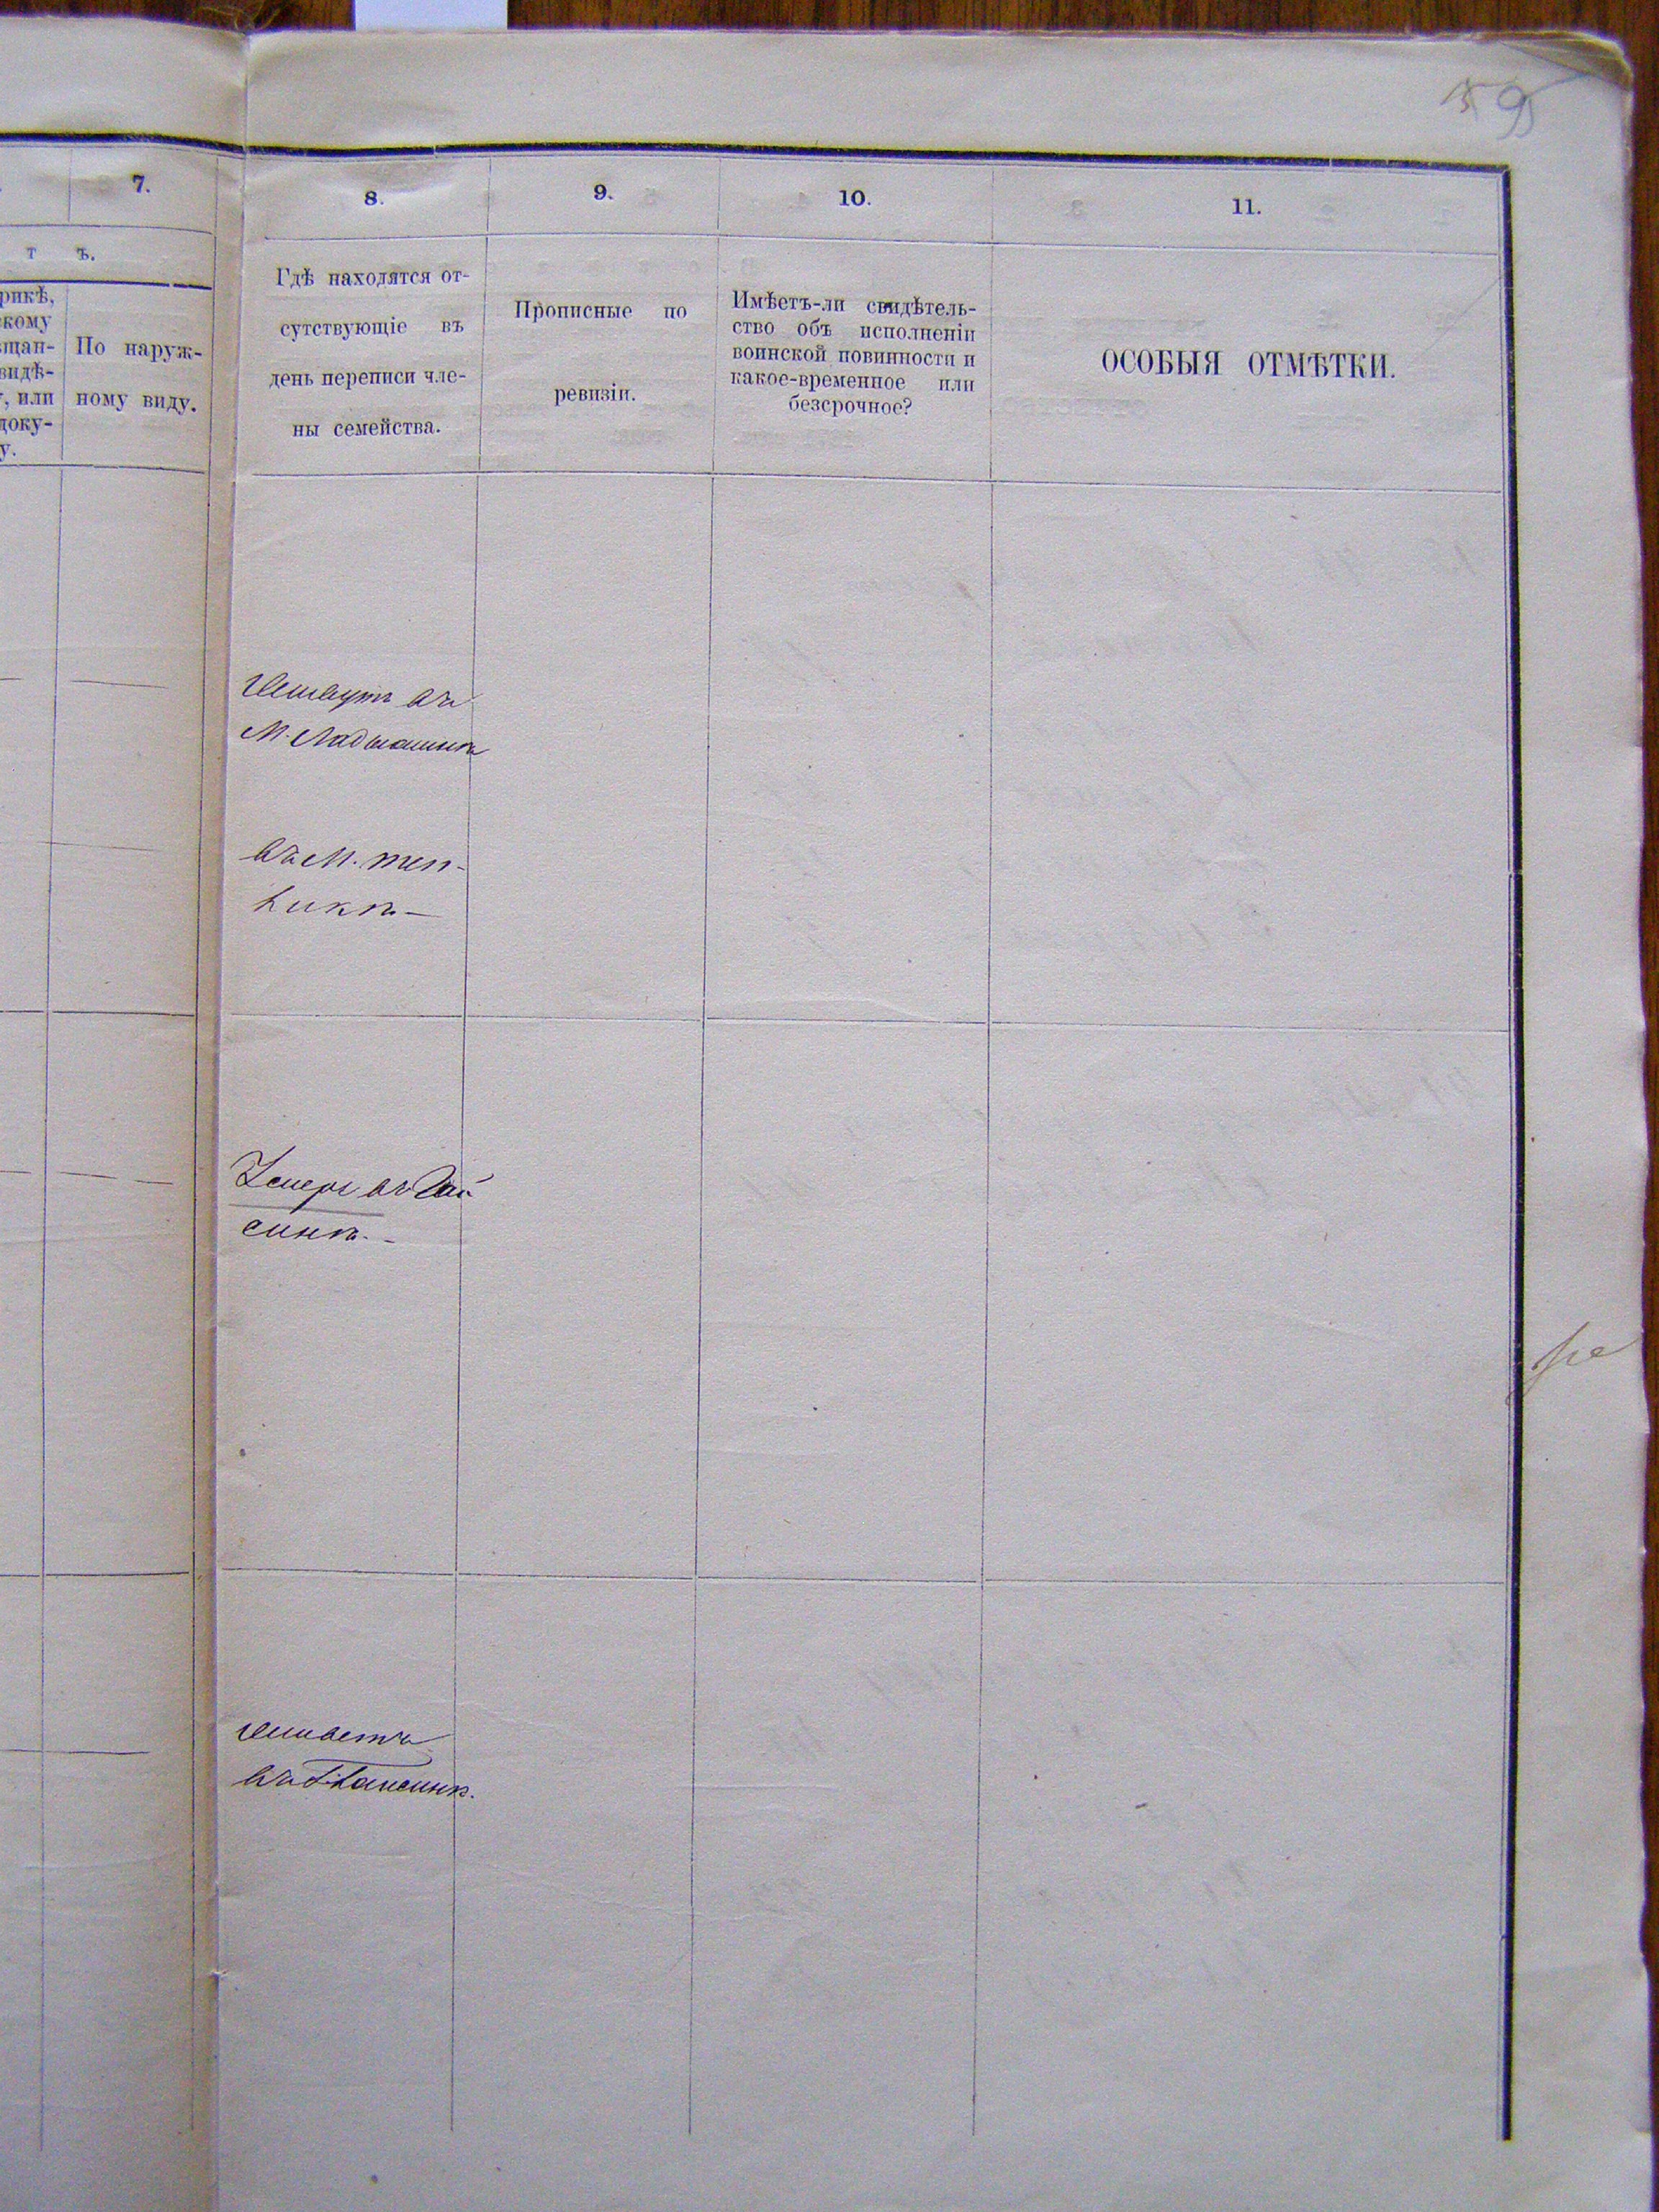 59
7.
8.
9.
10.
11.
т ъ.
рикѣ,
скому
щан-
видѣ-
, или
доку-
у.
По наруж-
ному виду.
Гдѣ находятся от-
сутствующіе въ
день переписи чле-
ны семейства.
Прописные по
ревизіи.
Имѣетъ-ли свидѣтель-
ство объ исполненіи
воинской повинности и
какое-временное или
безсрочное?
ОСОБЫЯ ОТМѢТКИ.
Живутъ въ
М. Ладыжинѣ
въ М. Теп-
ликѣ
въ Гай
синѣ.
Живетъ
въ Г. Гайсинѣ.